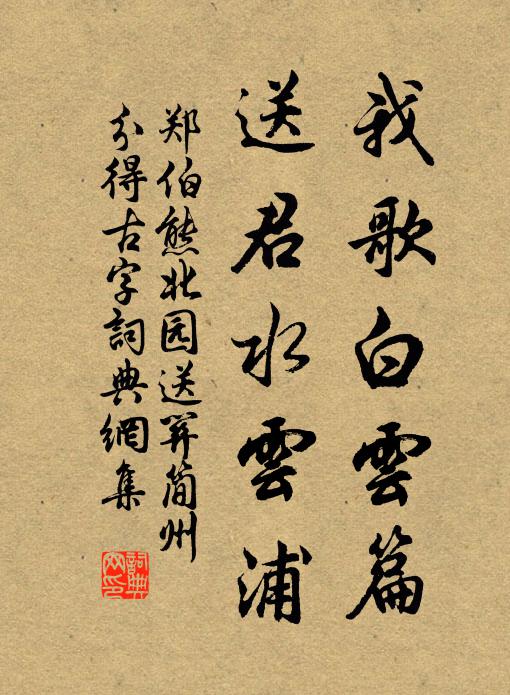 我歌白雲篇
送君水雲浦
郑伯熊北园送羿简州
分得古字詞典網集
詞典網印